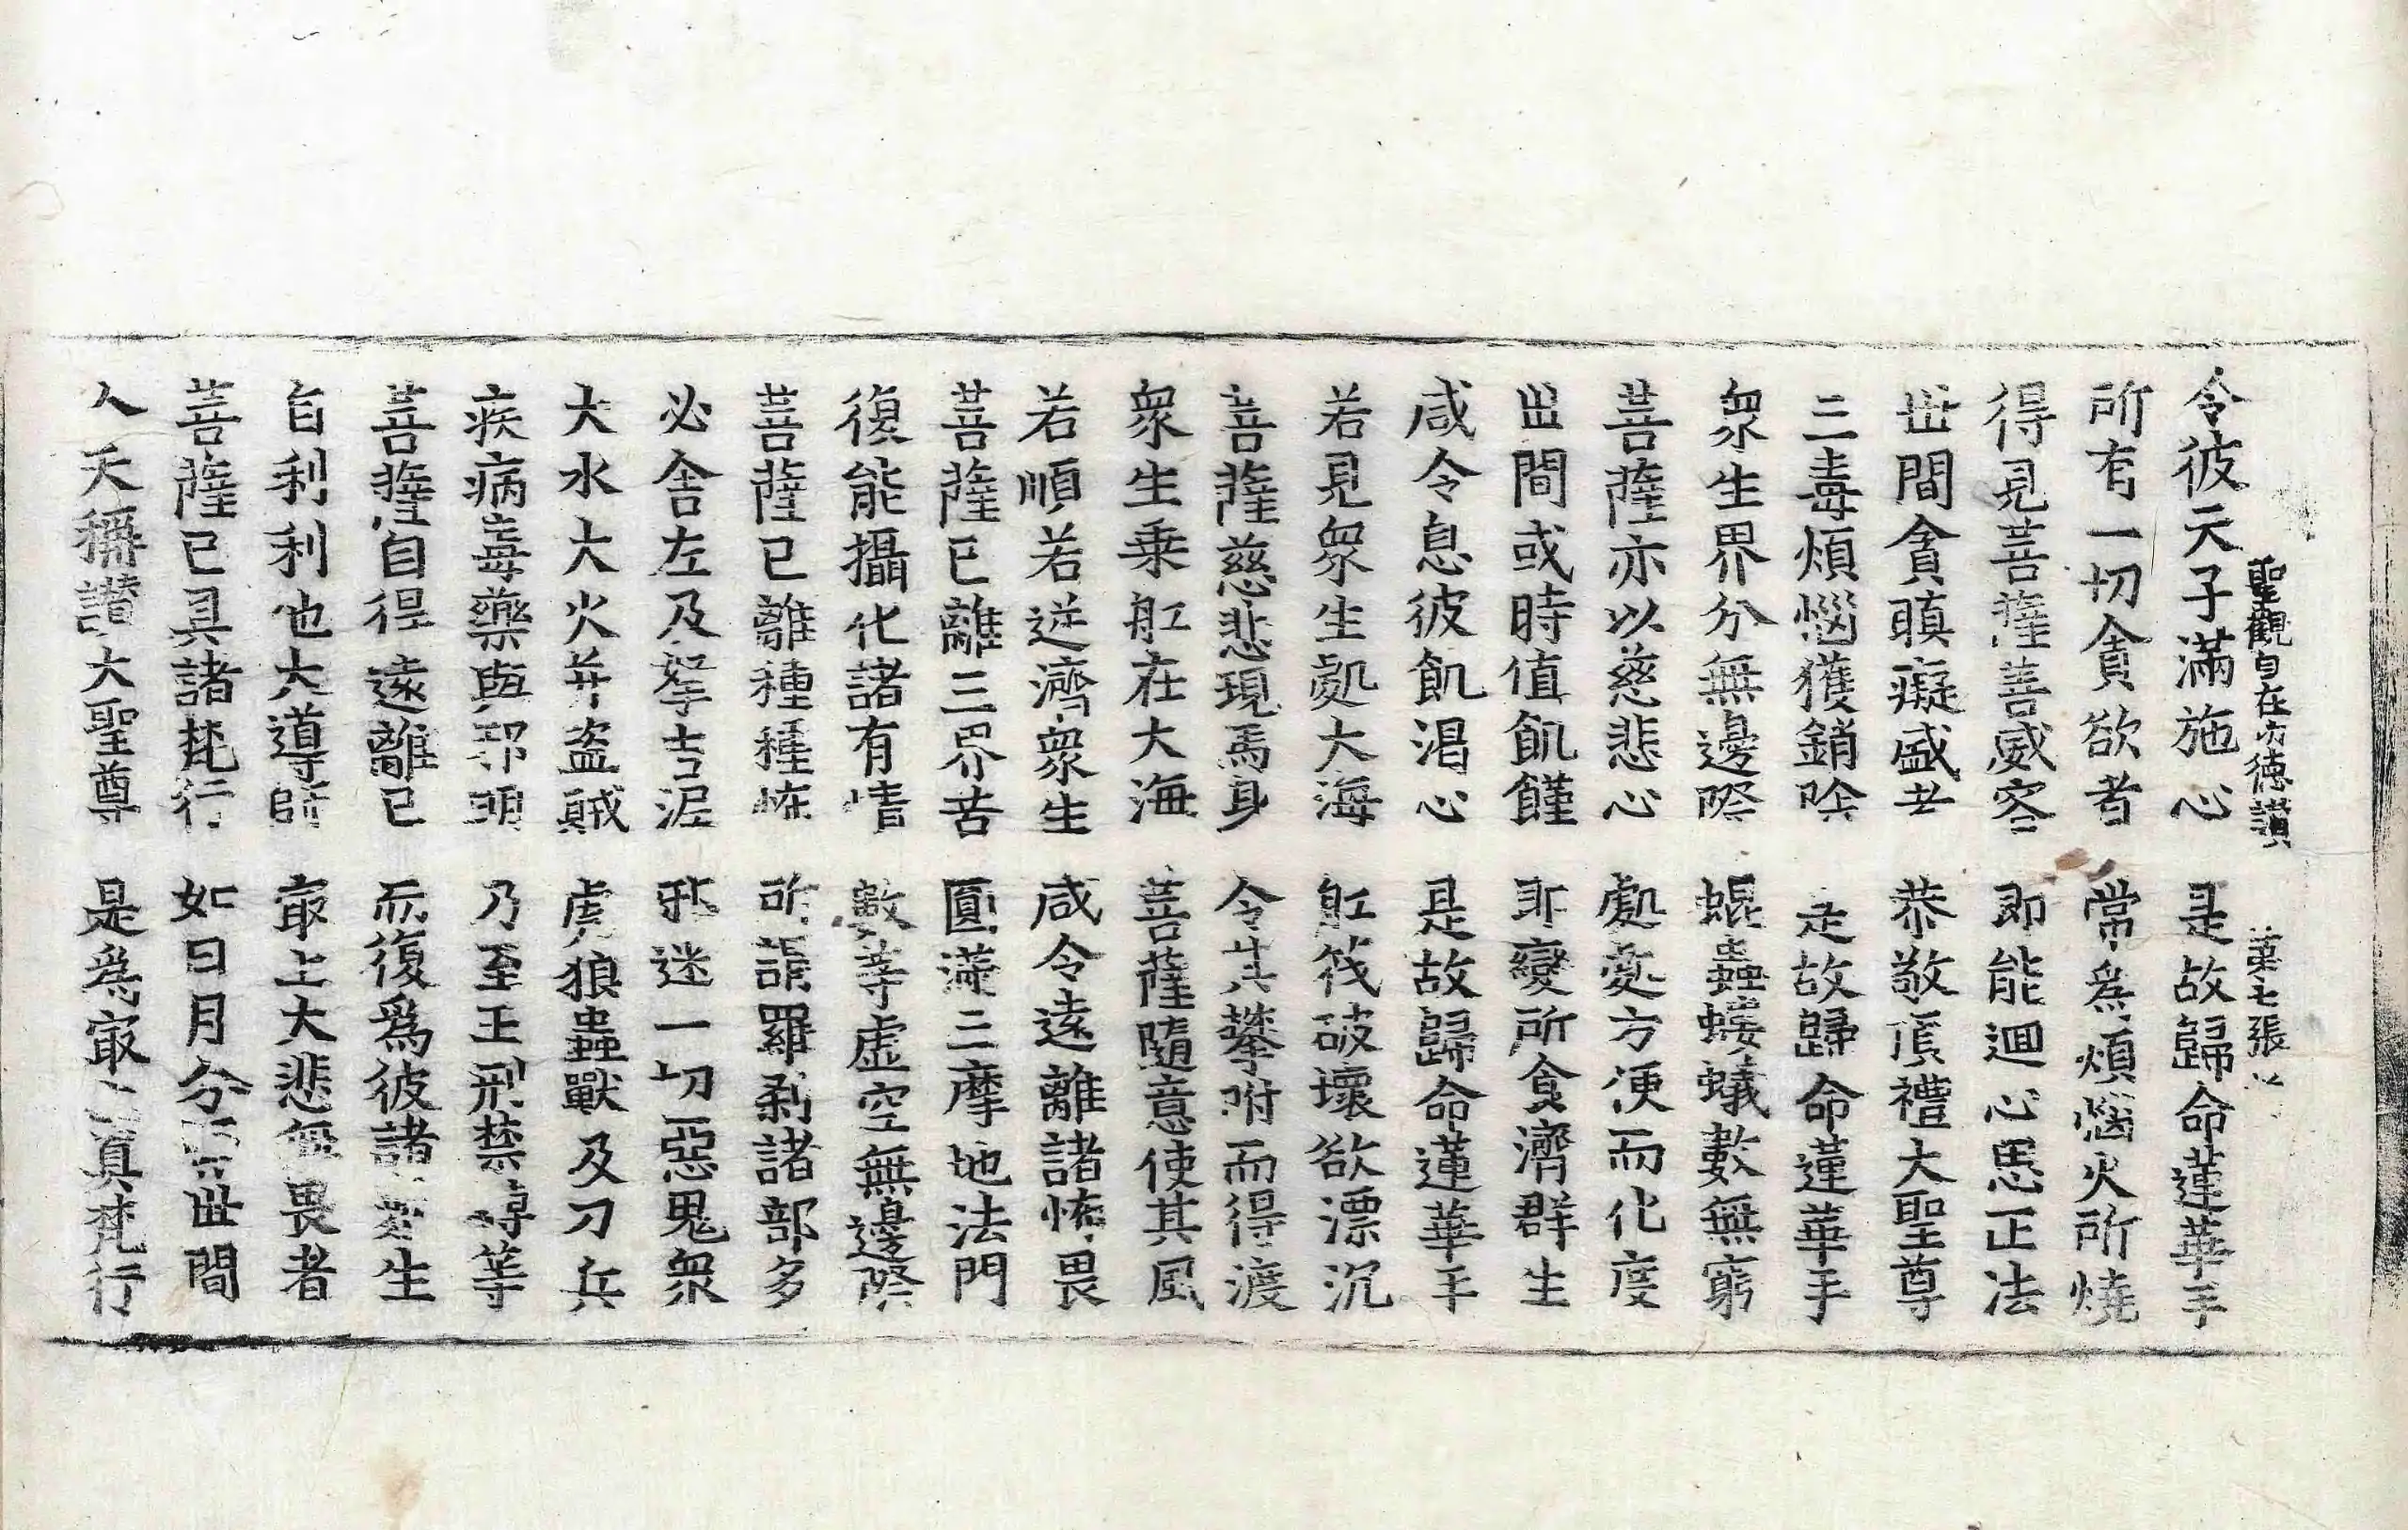 聖觀自在功德讚 第七張
令彼天子滿施心 是故歸命蓮華手
所有一切貪欲者 常爲煩惱火所燒
得見菩薩善威容 即能迴心思正法
世間貪瞋癡盛者 恭敬頂禮大聖尊
三毒煩惱獲銷除 是故歸命蓮華手
衆生界分無邊際 蜫蟲螻蟻數無窮
菩薩亦以慈悲心 處處方便而化度
世間或時值飢饉 即變所食濟群生
咸令息彼飢渴心 是故歸命蓮華手
若見衆生處大海 舡筏破壞欲漂沉
菩薩慈悲現馬身 令其攀附而得渡
衆生乘舡在大海 菩薩隨意使其風
若順若逆濟衆生 咸令遠離諸怖畏
菩薩已離三界苦 圓滿三摩地法門
復能攝化諸有情 數等虛空無邊際
菩薩已離種種怖 所謂羅剎諸部多
必舍左及拏吉泥 邪迷一切惡鬼衆
大水大火并盜賊 虎狼蟲獸及刀兵
疾病毒藥與邪明 乃至王刑禁縛等
菩薩自得遠離已 而復爲彼諸衆生
自利利他大導師 冣上大悲無畏者
菩薩已具諸梵行 如日月分 世間
人天稱讚大聖尊 是爲冣 真梵行